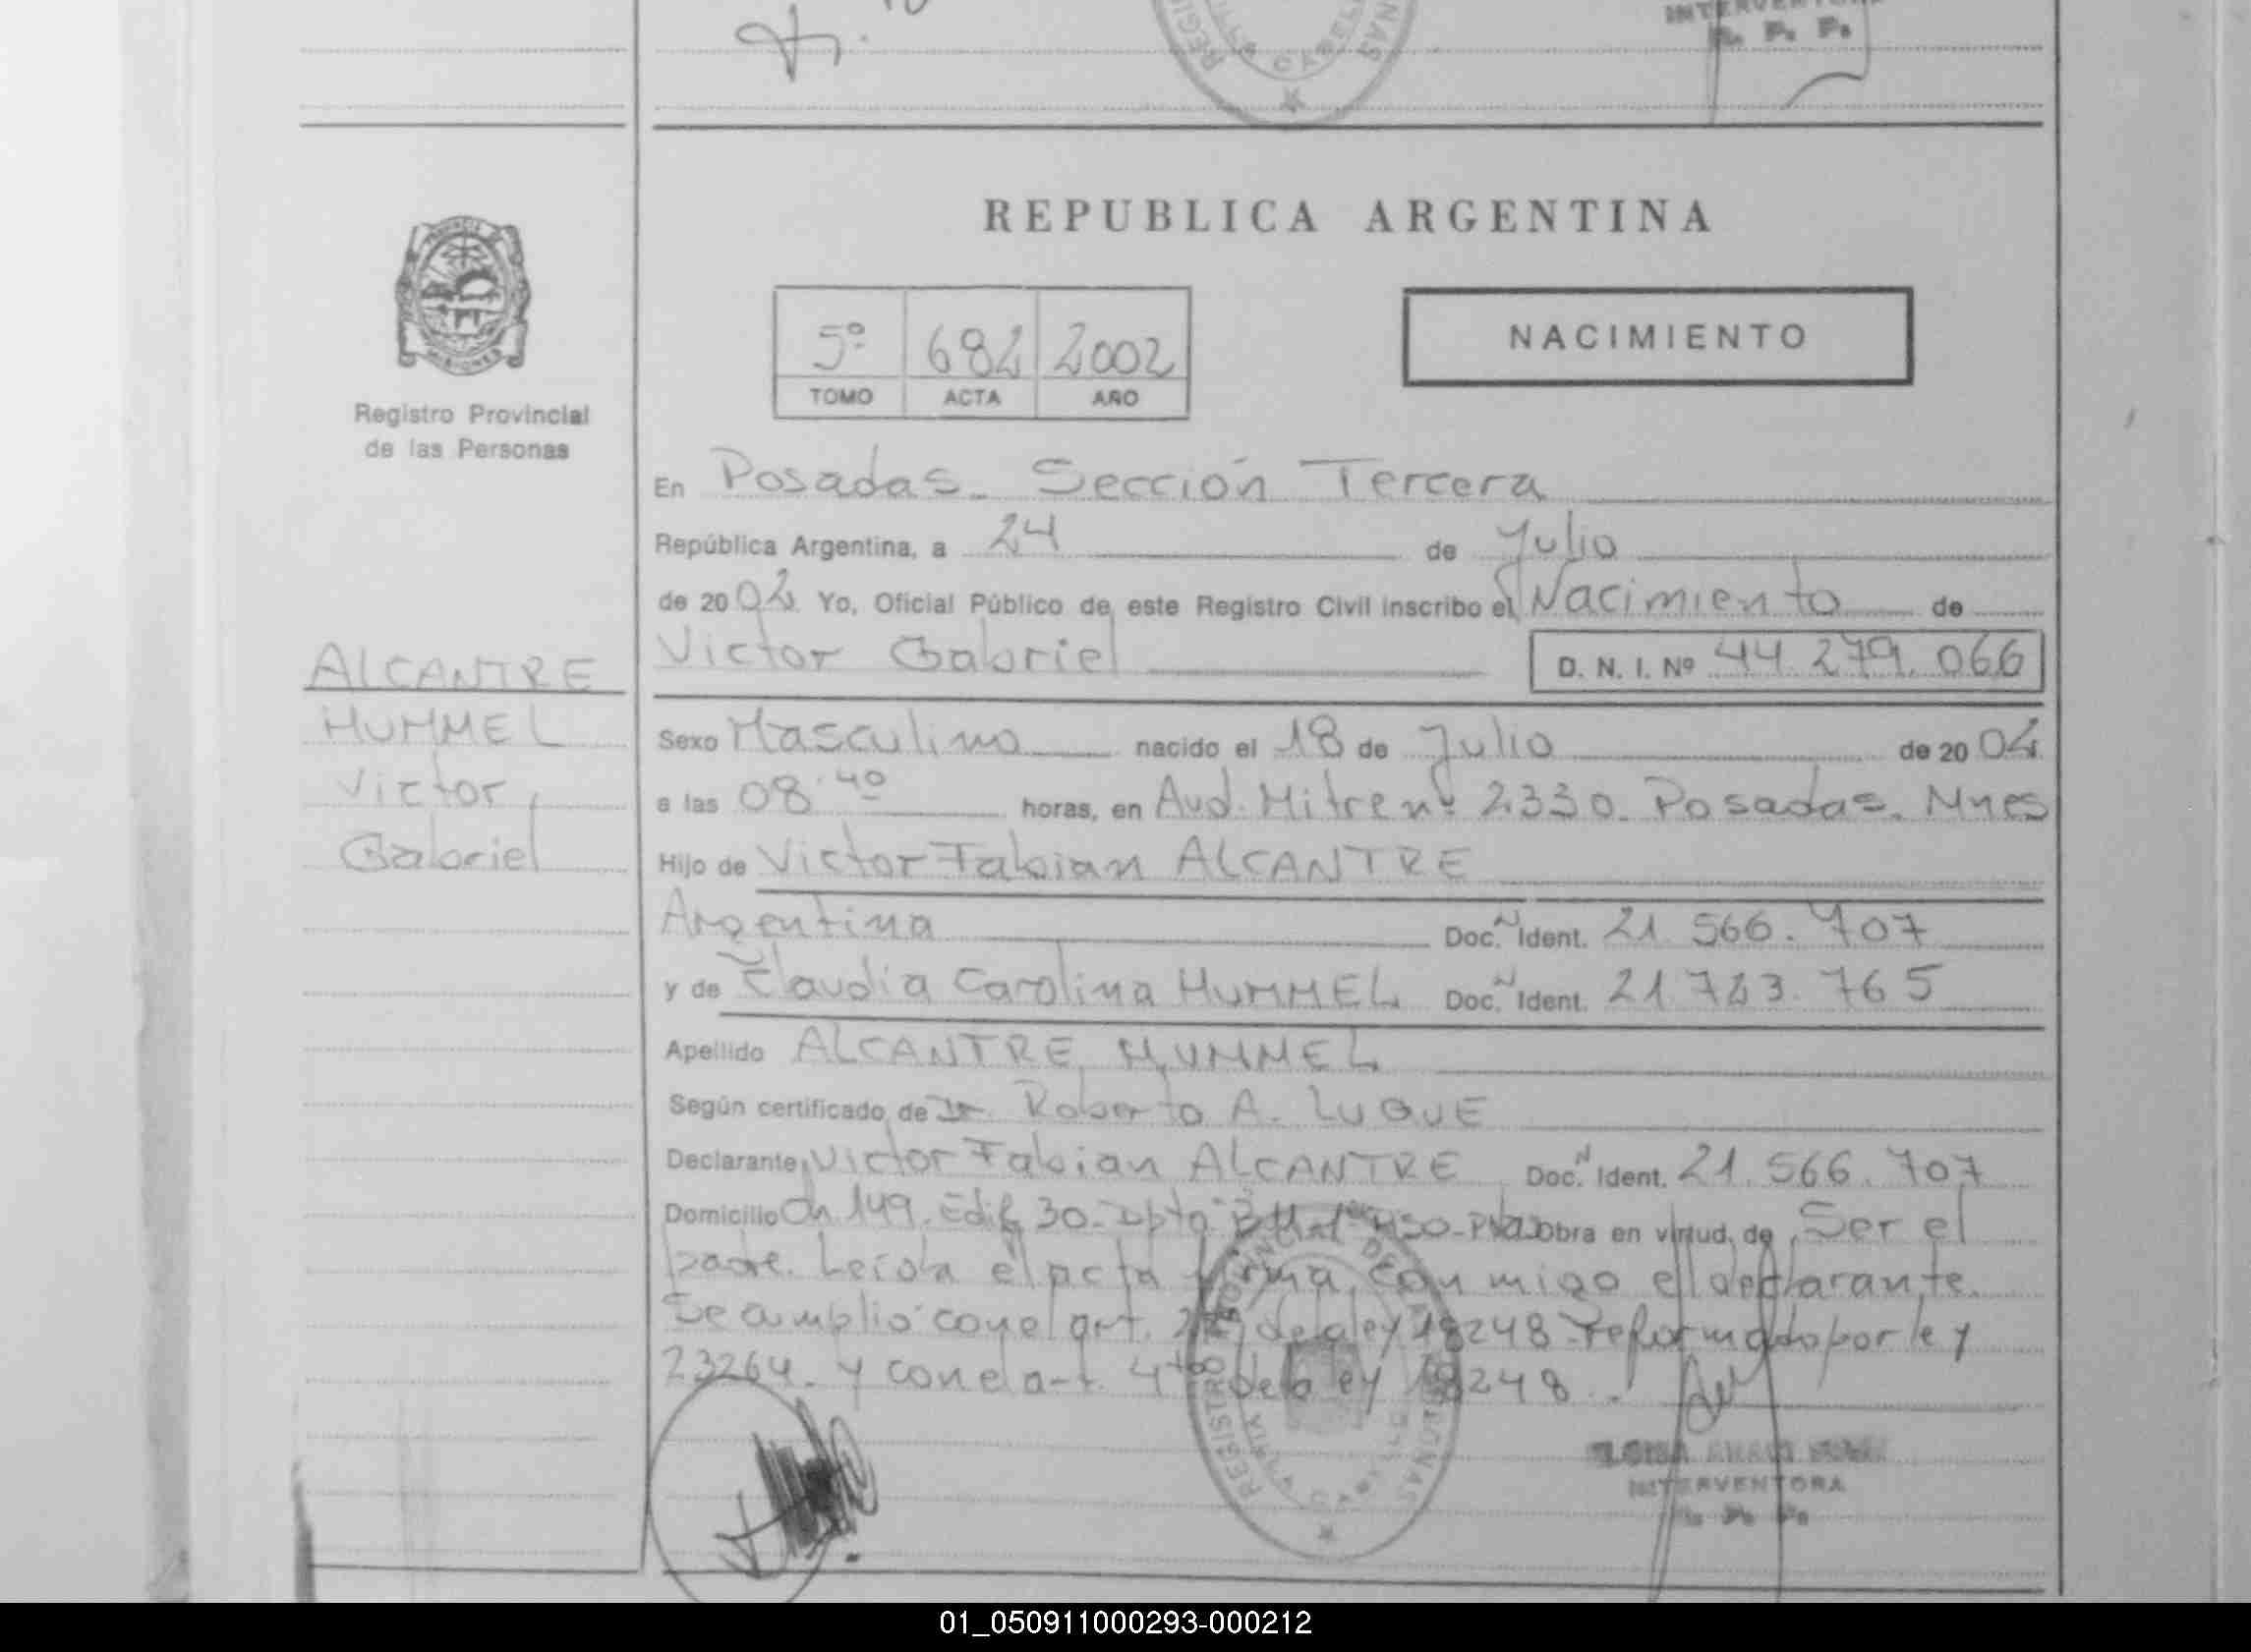 INTERVENTORA
R. P. P.
REPUBLICA ARGENTINA
5º 682 2002
TOMO ACTA AÑO
NACIMIENTO
Registro Provincial
de las Personas
En Posadas. Sección Tercera
República Argentina, a 24 de Julio
de 2002. Yo, Oficial Público de este Registro Civil inscribo el Nacimiento de
Victor Gabriel D. N. I. Nº 44.279.066
ALCANTRE
HUMMEL
Victor
Gabriel
Sexo Masculino nacido el 18 de Julio de 2002
a las 08:40 horas, en Avd. Mitre nº 2330. Posadas. Mnes
Hijo de Victor Fabian ALCANTRE
Argentina Doc. N Ident. 21.566.707
y de Claudia Carolina HUMMEL Doc. N Ident. 21.723.765
Apellido ALCANTRE HUMMEL
Según certificado de Dr. Roberto A. LUQUE
Declarante Victor Fabian ALCANTRE Doc. N Ident. 21.566.707
Domicilio Ch. 149. Edif 30. Dpto Obra en virtud de Ser el
padre. Leida el acta firma conmigo el declarante.
Se cumplio con el art. de la ley 18248 reformado por ley
23264. y con el art. 4to de la ley 18248.
REGISTRO PROVINCIAL DE LAS PERSONAS
INTERVENTORA
R. P. P.
01_050911000293-000212